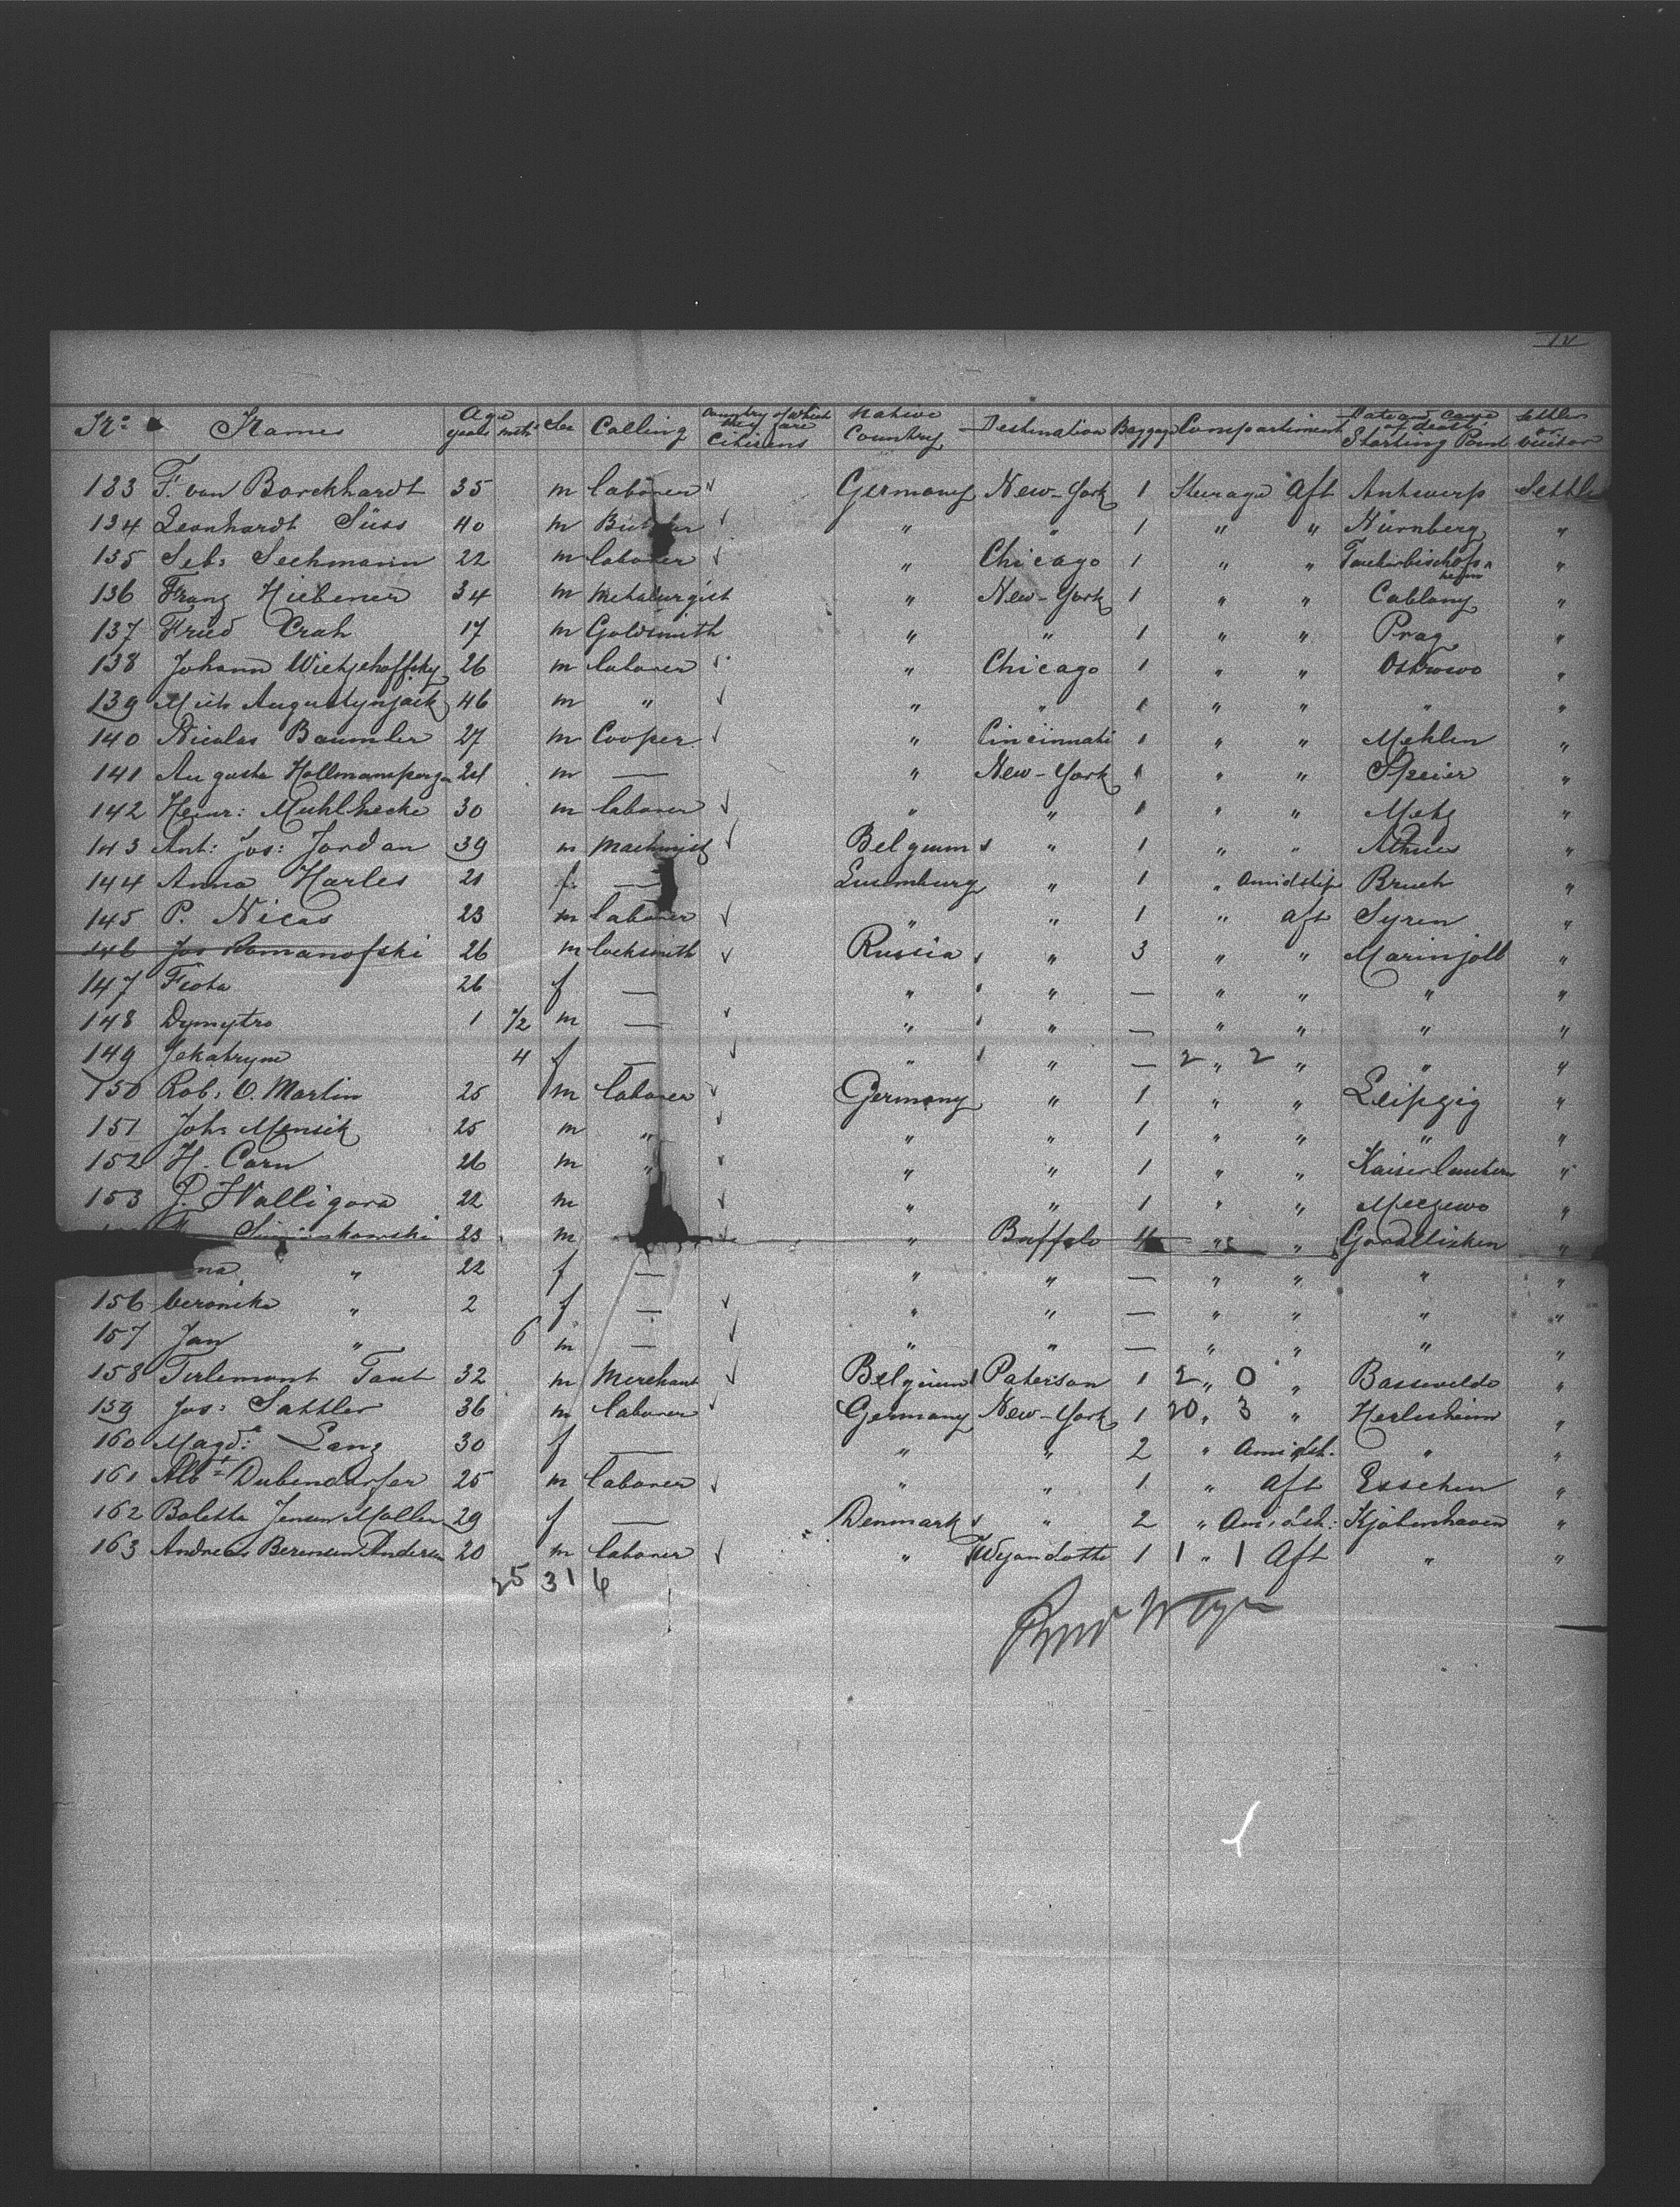 IV
No Names Age years mths Sex Calling Country of which they are Citizens Native Country Destination Baggage Compartiment Date and cause of death, Starting Point Settler or visitor
133 F. van Borckhardt 35 m laborer Germany New-York 1 Steerage Aft Antwerp Settler
134 Leonhardt Süss 40 m " " 1 " " Nürnberg "
135 Seb: Sechmann 22 m laborer " Chicago 1 " " Tauberbischofsheim "
136 Franz Hiebener 34 m Metalurgist " New-York 1 " " Cablony "
137 Fried Crah 17 m Goldsmith " " 1 " " Prag "
138 Johann Wietzehoffsky 26 m laborer " Chicago 1 " " Ostrowo "
139 Mich Augustynjack 46 m " " " 1 " " " "
140 Nicolas Baumler 27 m Cooper " Cincinnati 1 " " Mehlen "
141 Augusta Hollmansperger 24 m — " New-York 1 " " Speier "
142 Heinr: Muhlhecke 30 m laborer " " 1 " " Metz "
143 Ant: Jos: Jordan 39 m Machinist Belgium " 1 " " "
144 Anna Harles 21 f — Luxemburg " 1 " Amidship Bruch "
145 P. Nicas 23 m laborer " " 1 " aft Syren "
146 Jos Romanofski 26 m locksmith Russia " 3 " " Marinjolb "
147 Fiota 26 f — " " — " " " "
148 Dymytro 1 1/2 m — " " — " " " "
149 Jekatryne 4 f — " " — 2 " 2 " " "
150 Rob: O. Martin 25 m laborer Germany " 1 " " Leipzig "
151 Joh: Mensik 25 m " " " 1 " " " "
152 H. Corn 26 m " " " 1 " " Kaiserlautern "
153 J. Walligora 22 m " " 1 " " Meczewo "
23 m " Buffalo 4 " " Gorallisken "
na " 22 f — " " — " " " "
156 Veronika " 2 f — " " — " " " "
157 Jan " 6 m — " " — " " " "
158 Tirlemont Taut 32 m Merchant Belgium Paterson 1 2 " 0 " Bassevelde "
159 Jos: Sattler 36 m laborer Germany New-York 1 20 " 3 " Herlisheim "
160 Magd: Lang 30 f — " " 2 " Amidsh. " "
161 Albt Dubendorfer 25 m laborer " " 1 " Aft Esschen "
162 Bolette Jensen Moller 29 f — Denmark " 2 " Amidsh: Kjobenhaven "
163 Andreas Berensen Andersen 20 m laborer " Wyandotte 1 1 " 1 Aft " "
25 31 6